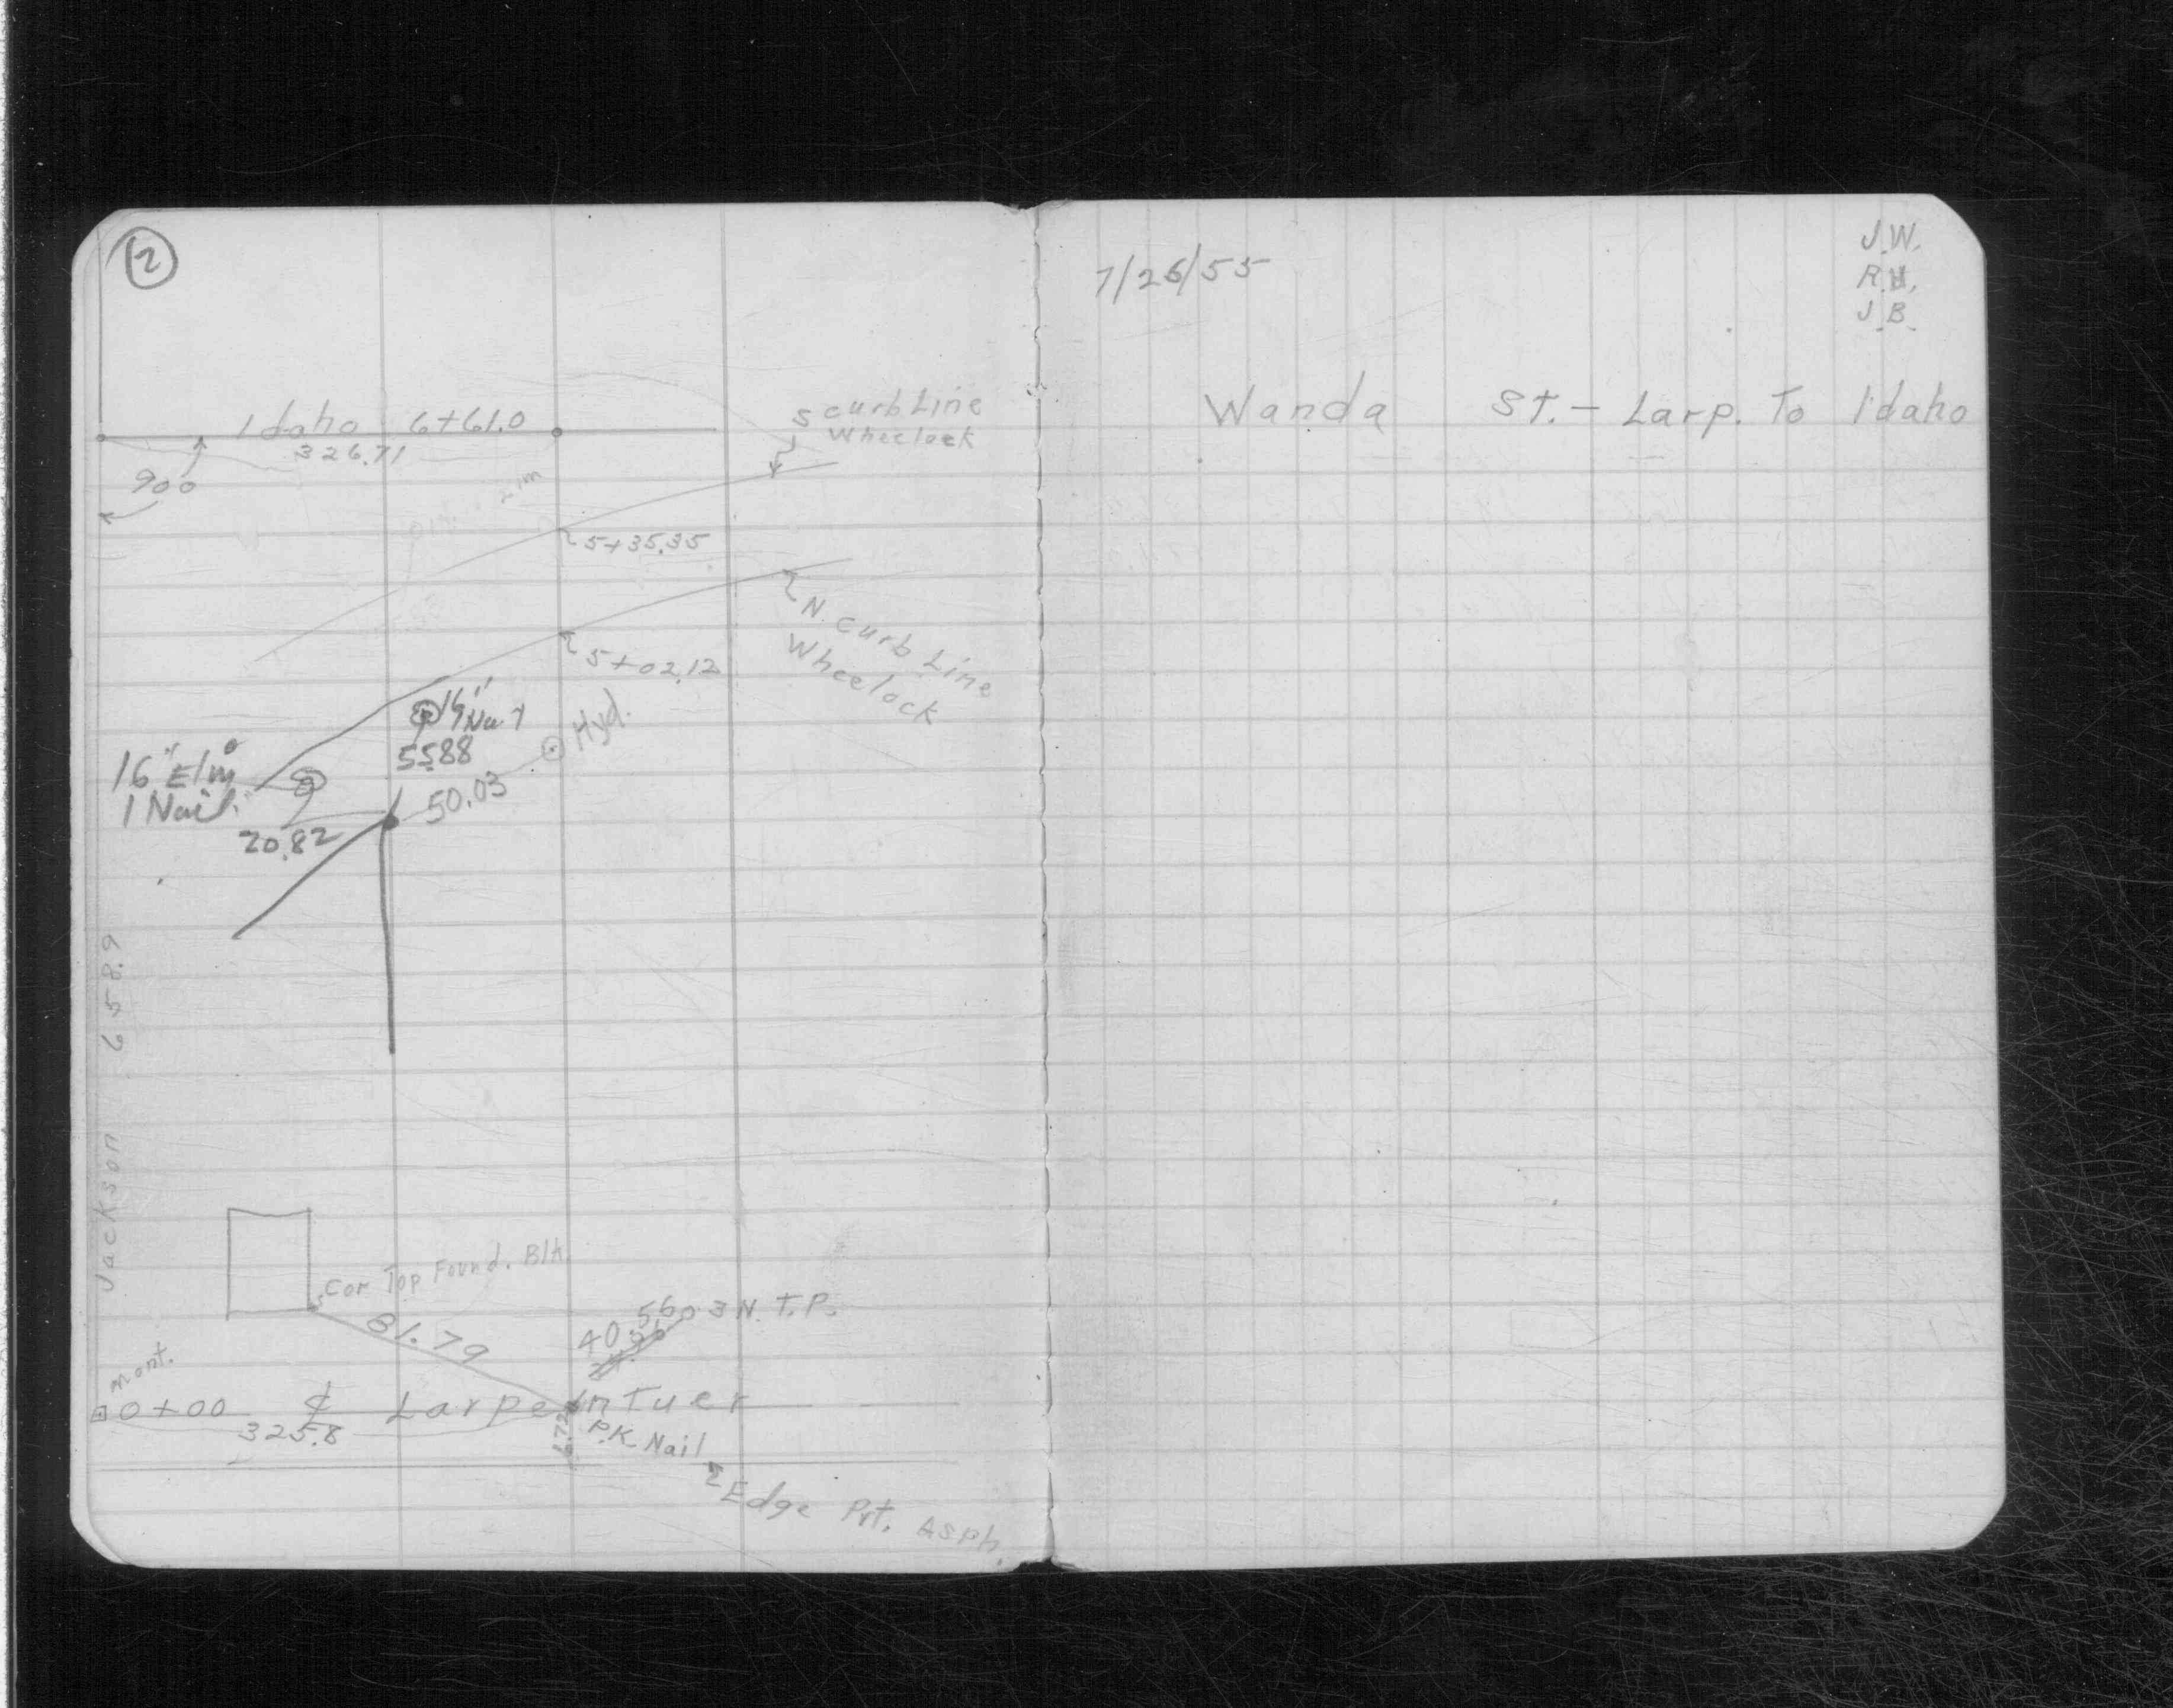 2
Idaho 6+61.0
326.71
900
S curb Line
Wheelock
5+35.35
N. Curb Line
Wheelock
5+02.12
Nail
55.88
Hyd.
16" Elm
1 Nail
50.03
20.82
Jackson 658.9
Cor Top Found. Blk.
81.79
40.56
3 N. T.P.
mont.
0+00 ℄ Larpentuer
325.8
P.K. Nail
Edge Prt. Asph.
7/26/55
J.W.
R.H.
J.B.
Wanda St. - Larp. To Idaho